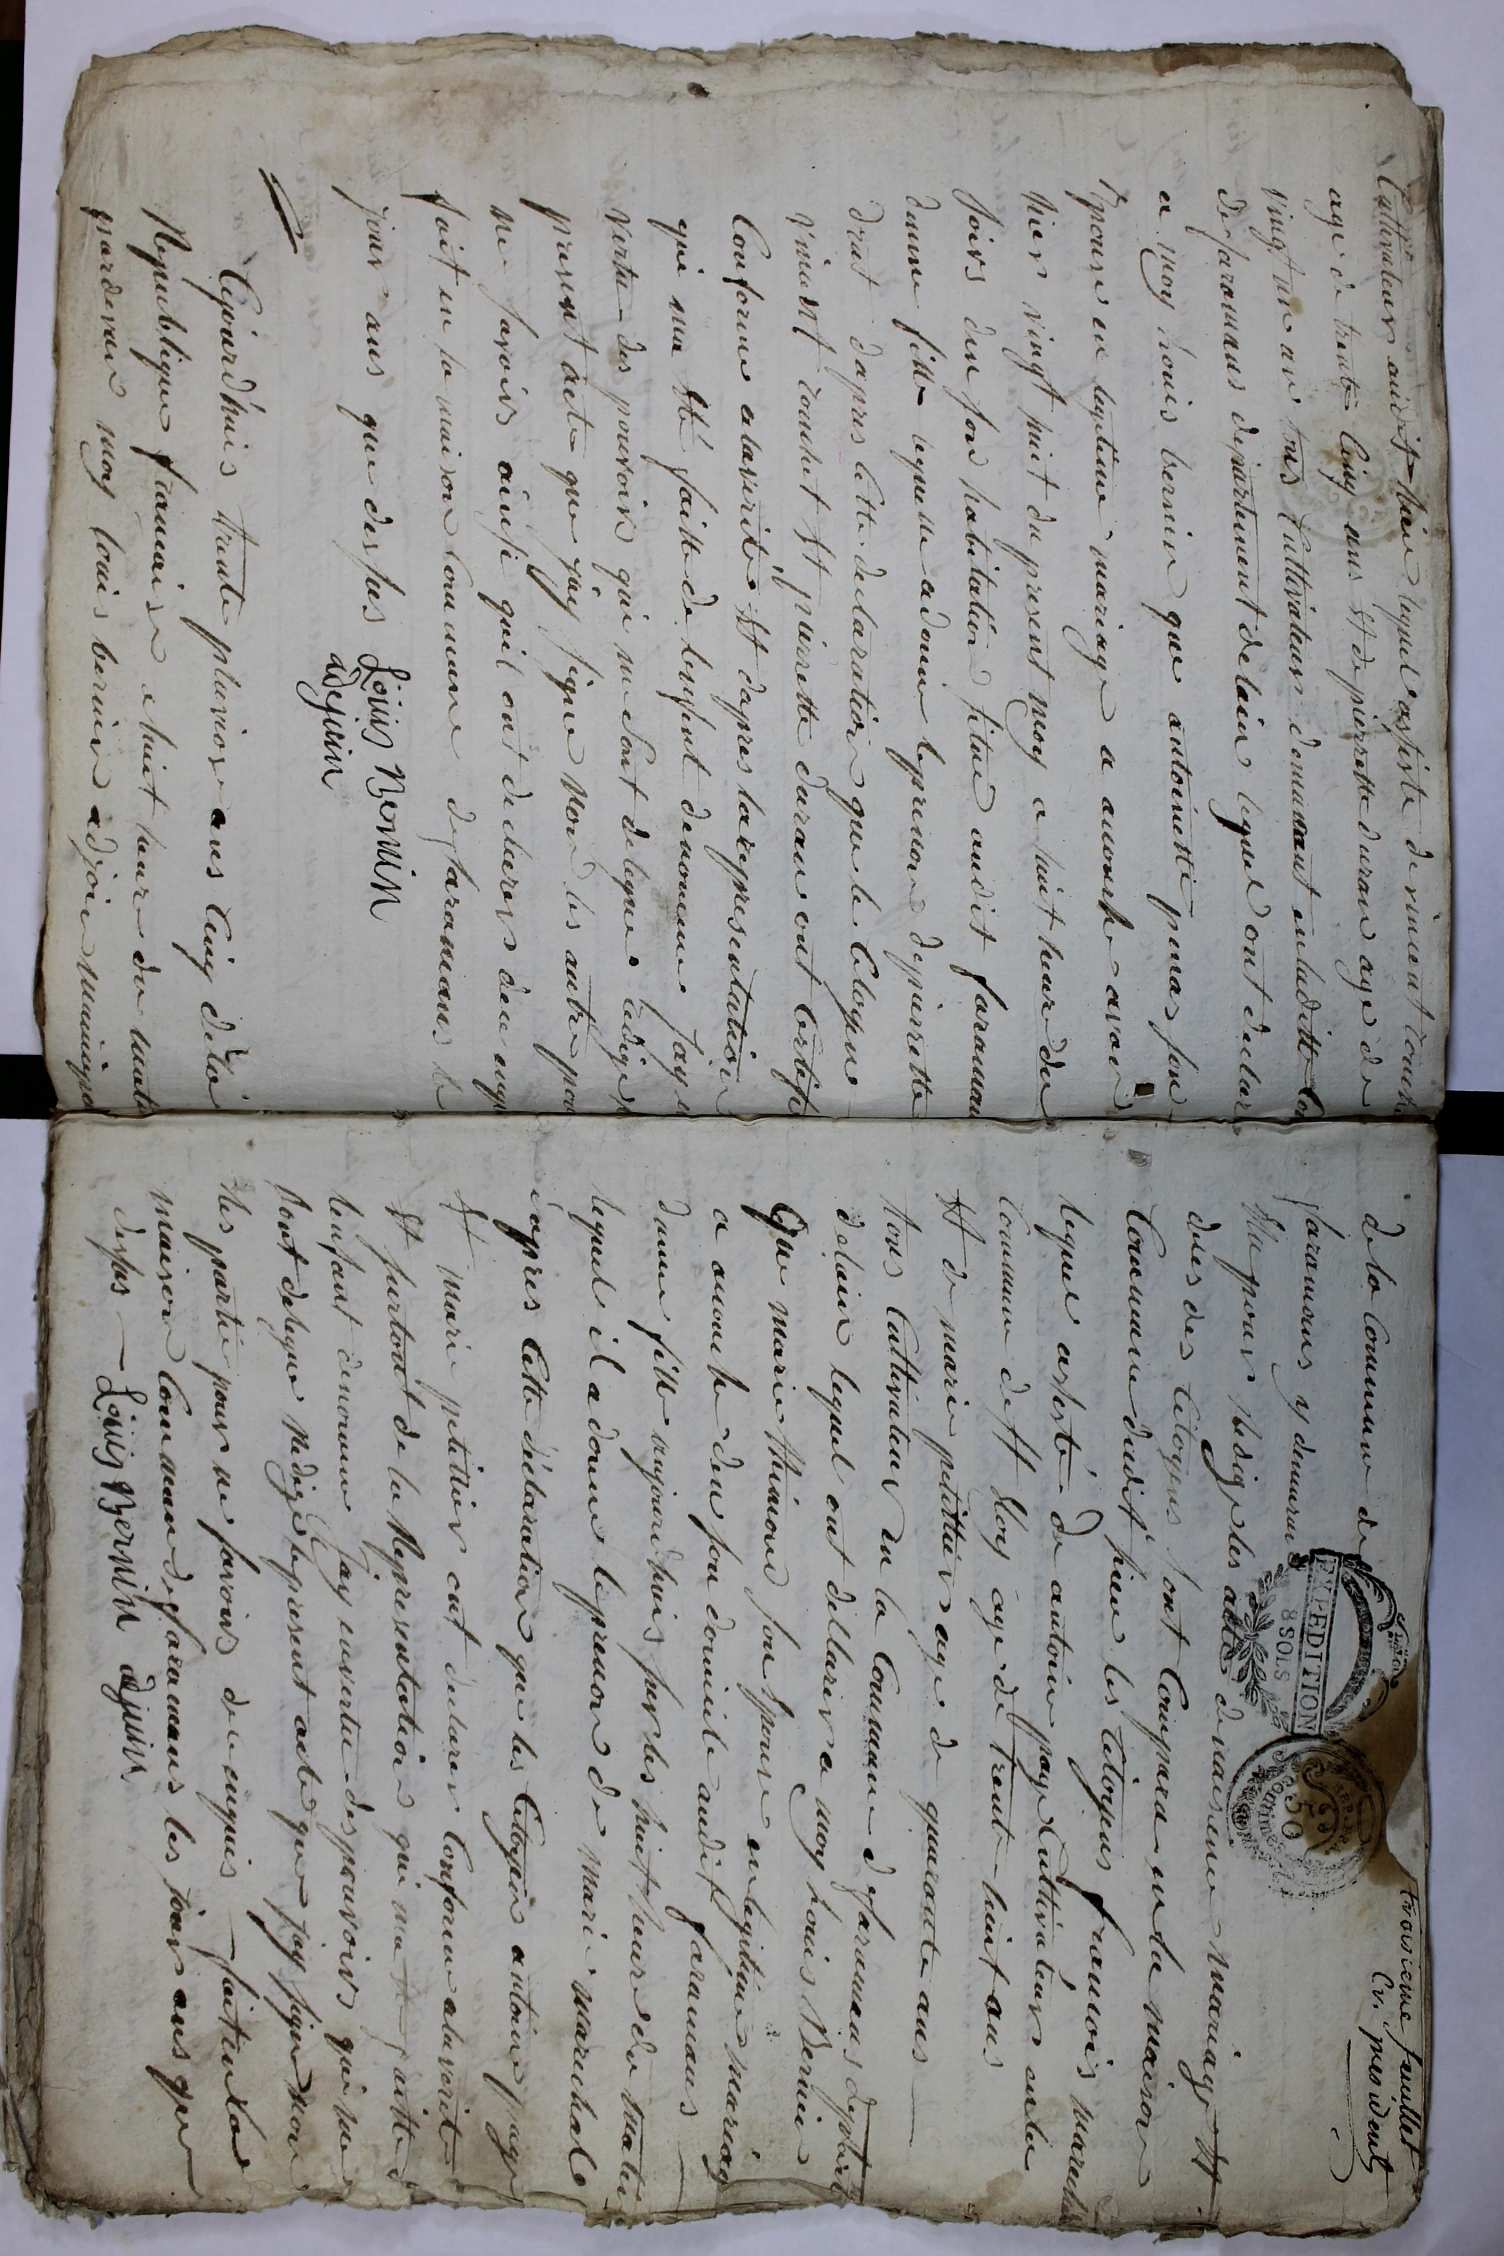 Cultivateur audit lieu lequel assisté de vincent couch
age de trente Cinq ans et de pierrette duran age de
vingt un ans tous Cultivateur demeurant en laditte Co
de faramans departement delain lequel ont declar
a moy Louis bernin que antoinette penas son
Epouse en legitime mariage a acouche avan
hier vingt huit du present moy a huit heure du
soirs dan son habitation situé audit faramans
dunne fille lequelle a donne leprenon de pierrette
drat dapres cette declaration que le Citoyen
vincent couchet et pierrette duran ont Certifie
Conforme alaverite et dapres la representation
qui ma été faitte de lenfant denomme jay en
vertu des pouvoirs qui me sont delegue rédigé le
present acte que jay signe non les autre pour
ne savoirs ainsi quil ont declarer deu enqu
fait en la maison Commune de faramans le
jour ans que dessus Louis Bernin
adjoin
Cejourd'huis trente pluviose ans Cinq dela
Republique francaise a huit heure du matin
pardevan moy Louis bernin adjoin municipal
troisieme feuillet
président
EXPEDITION
8 SOLS
50
Centimes
dela Commune de
faramans y demeurant
Elu pour Redige les actes de naissance mariage et
deces des Citoyens sont Compara en la maison
Commune dudit lieu les Citoyens francois marechal
lequel assisté de antoine page Cultivateur en la
Commune de st Eloy age de trente huit ans
et de marie petittier age de quarante ans
tous Cultivateur en la Commune de faramans depart
delain lequel ont dellarer a moy Louis Bernin
Que marie thimond son Epouse en legitime mariage
a acouche den son domicile audit faramans
dunne fille aujourdhuis sur les huit heure du matin
lequel il a donne leprenon de Marie marechale
dapres Cette déclaration que les Citoyen antoine page
et marie petittier ont declarer Conforme alaverite
et surtout de la Representation qui ma été faitte de
lenfant denomme jay en vertu des pouvoirs qui me
sont delegue Redige le present acte que jay signe non
les partie pour ne savoirs de ce enquis fait en la
maison Commune de faramans les jour ans que
dessus Louis Bernin adjoin